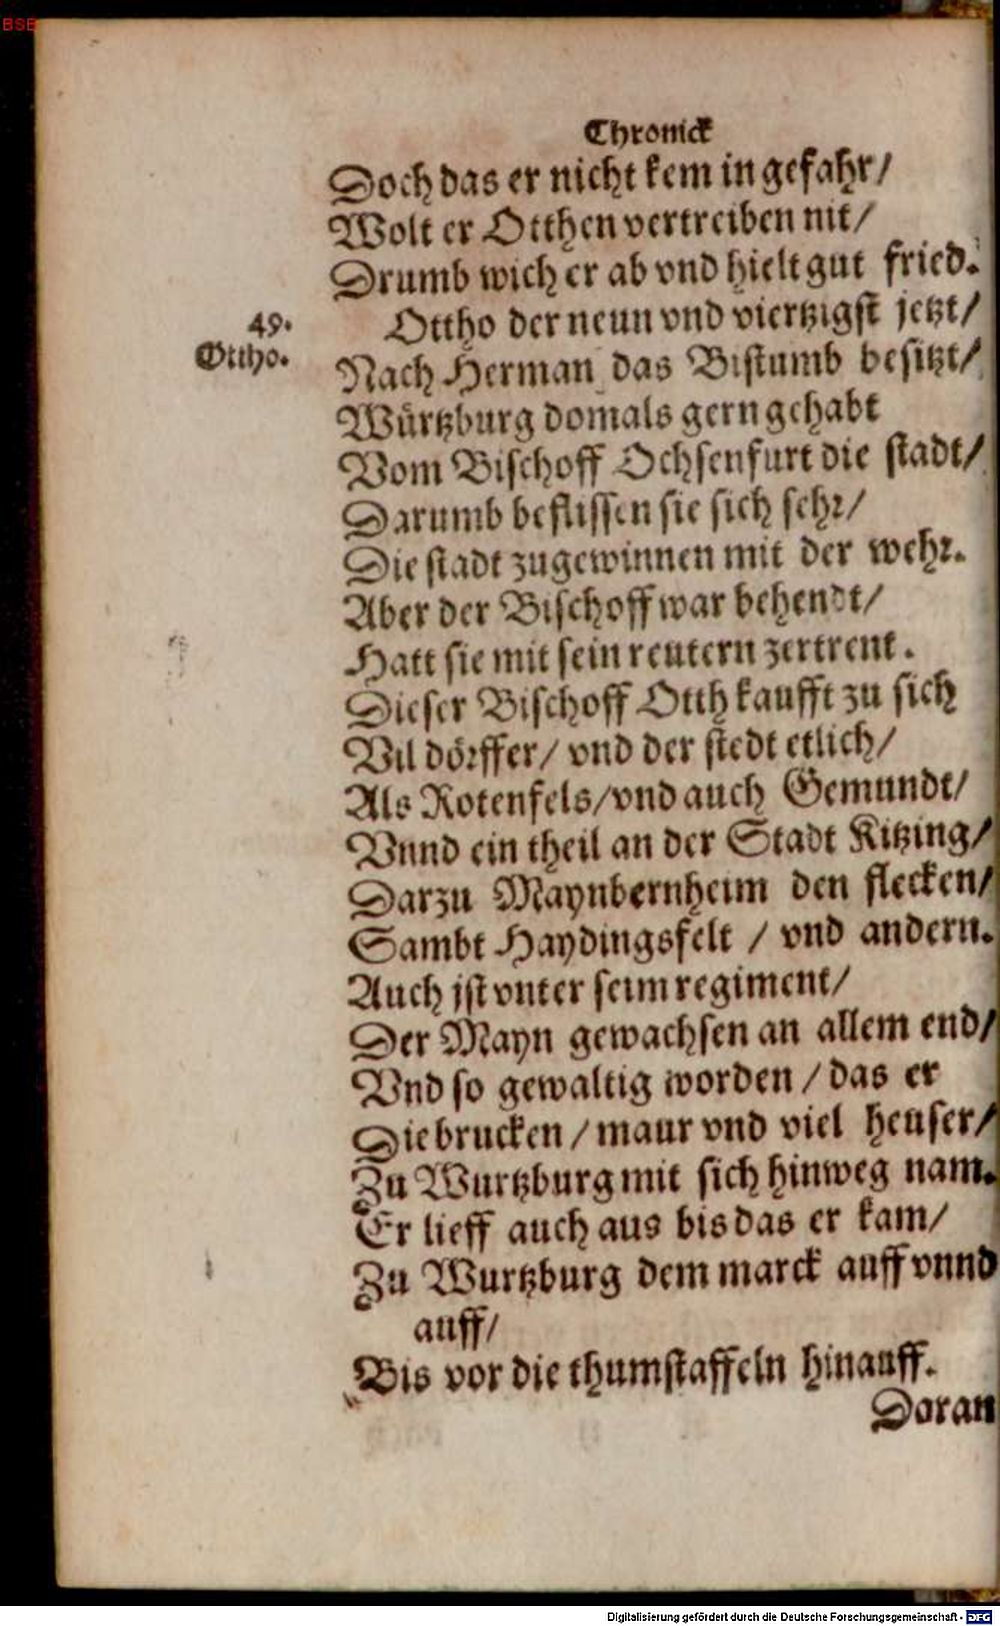 BSB
Chronick
Doch das er nicht kem in gefahr/
Wolt er Otthen vertreiben nit/
Drumb wich er ab vnd hielt gut fried.
49.
Ottho.
Ottho der neun vnd viertzigst jetzt/
Nach Herman das Bistumb besitzt/
Würtzburg domals gern gehabt
Vom Bischoff Ochsenfurt die stadt/
Darumb beflissen sie sich sehr/
Die stadt zugewinnen mit der wehr.
Aber der Bischoff war behendt/
Hatt sie mit sein reutern zertrent.
Dieser Bischoff Otth kaufft zu sich
Vil dörffer/ vnd der stedt etlich/
Als Rotenfels/vnd auch Gemundt/
Vnnd ein theil an der Stadt Kitzing/
Darzu Maynbernheim den flecken/
Sambt Haydingsfelt / vnd andern.
Auch jst vnter seim regiment/
Der Mayn gewachsen an allem end/
Vnd so gewaltig worden / das er
Die brucken / maur vnd viel heuser/
Zu Wurtzburg mit sich hinweg nam.
Er lieff auch aus bis das er kam/
Zu Wurtzburg dem marck auff vnnd
auff/
Bis vor die thumstaffeln hinauff.
Daran
Digitalisierung gefördert durch die Deutsche Forschungsgemeinschaft - DFG